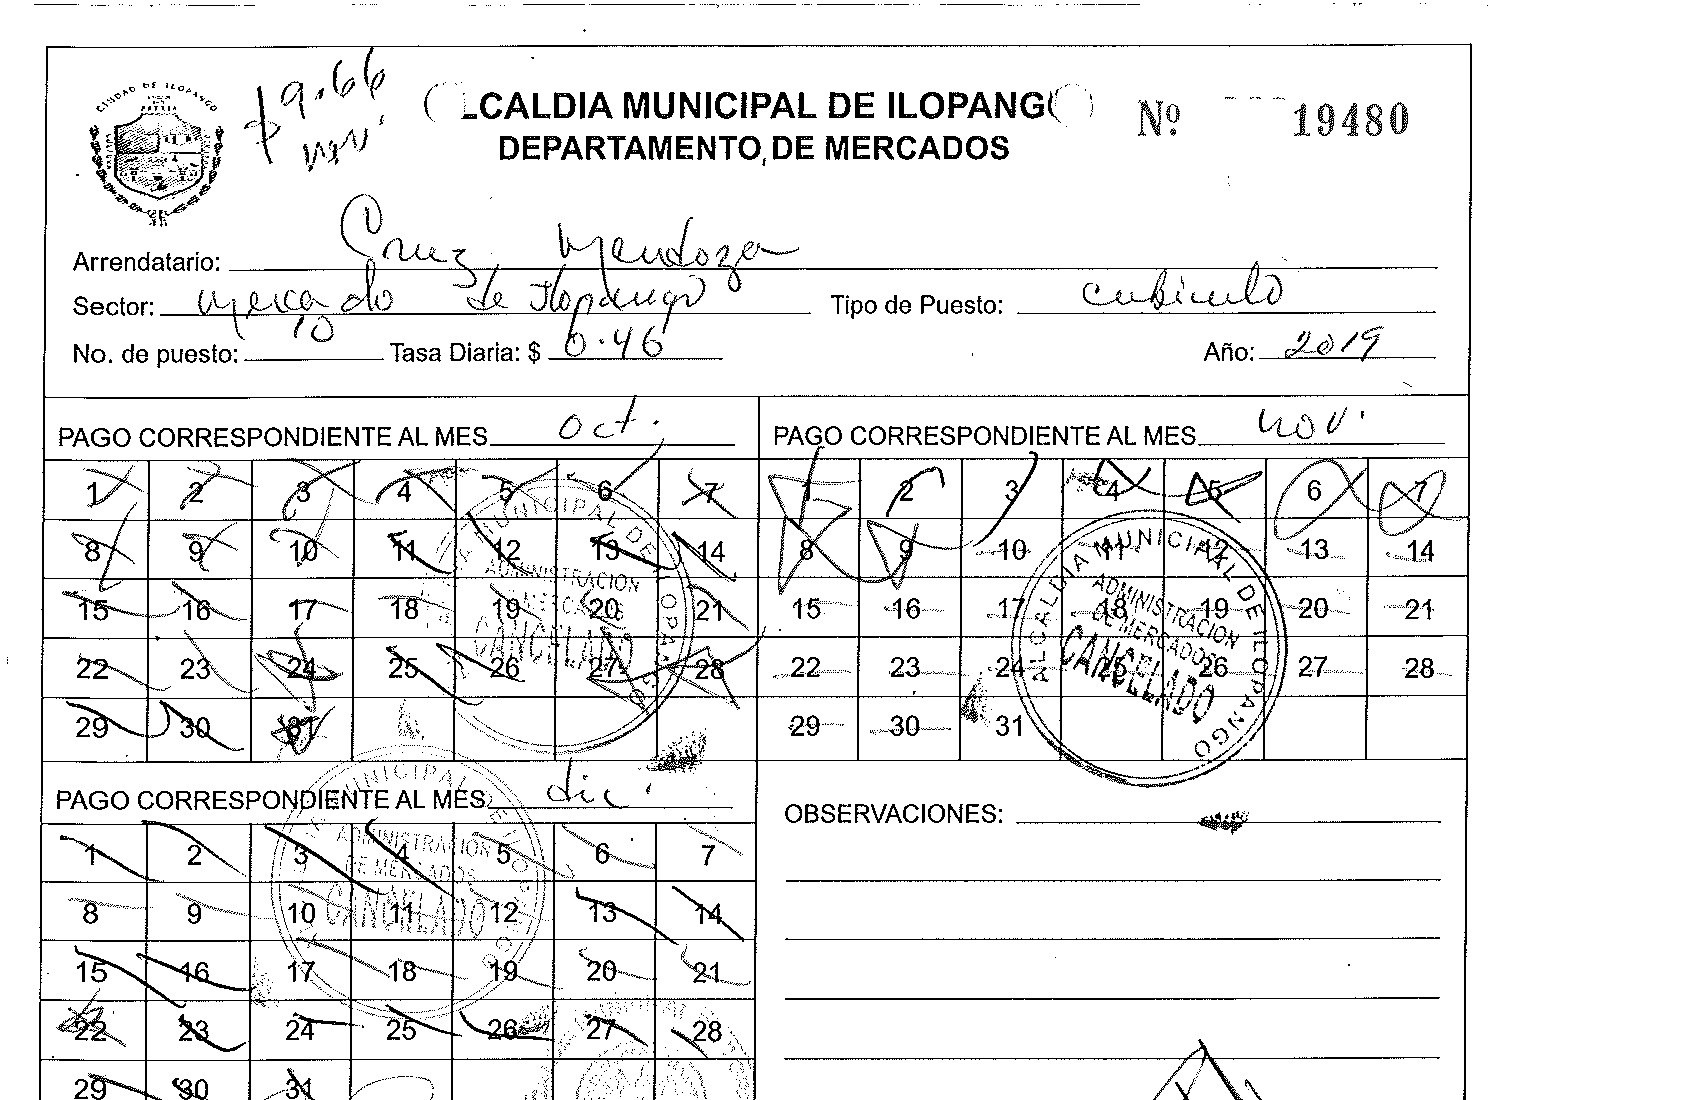 CIUDAD DE ILOPANGO
$ 9.66
nov.
LCALDIA MUNICIPAL DE ILOPANG
DEPARTAMENTO DE MERCADOS
Nº 19480
Arrendatario: Cruz Mendoza
Sector: Mercado de Ilopango Tipo de Puesto: cubiculo
No. de puesto: 10 Tasa Diaria: $ 0.46 Año: 2019
PAGO CORRESPONDIENTE AL MES oct.
1 2 3 4 5 6 7
8 9 10 11 12 13 14
15 16 17 18 19 20 21
22 23 24 25 26 27 28
29 30 31
MUNICIPAL DE ILOPANGO
ADMINISTRACION
DE MERCADOS
CANCELADO
PAGO CORRESPONDIENTE AL MES nov.
1 2 3 4 5 6 7
8 9 10 11 12 13 14
15 16 17 18 19 20 21
22 23 24 25 26 27 28
29 30 31
ALCALDIA MUNICIPAL DE ILOPANGO
ADMINISTRACION
DE MERCADOS
CANCELADO
PAGO CORRESPONDIENTE AL MES dic.
1 2 3 4 5 6 7
8 9 10 11 12 13 14
15 16 17 18 19 20 21
22 23 24 25 26 27 28
29 30 31
MUNICIPAL DE
ADMINISTRACION
DE MERCADOS
CANCELADO
OBSERVACIONES: